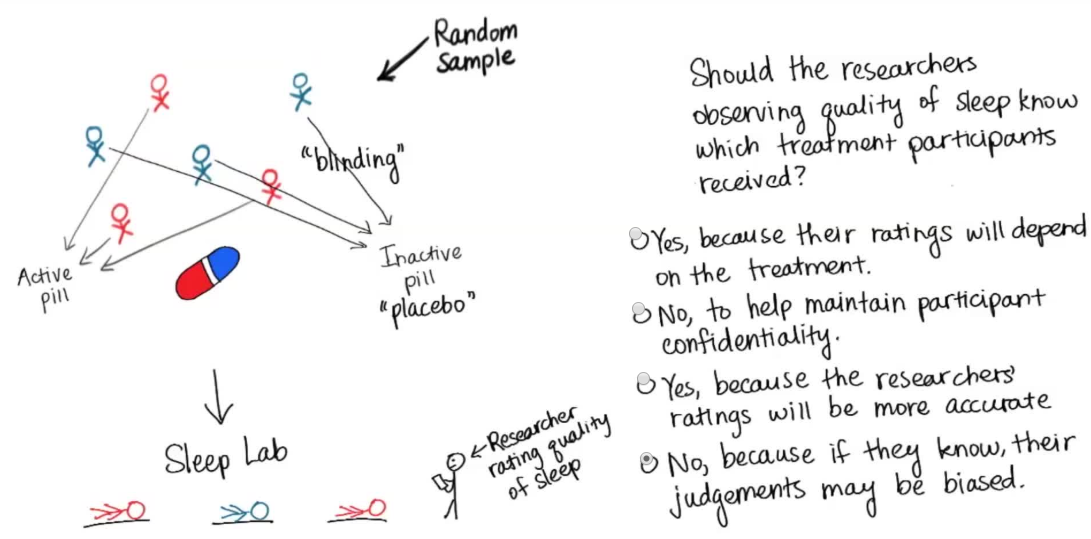 Random
sample
"blinding"
Active
pill
Inactive
pill
"placebo"
Sleep Lab
←Researcher
rating quality
of sleep
Should the researchers
observing quality of sleep know
which treatment participants
received?
Yes, because their ratings will depend
on the treatment.
No, to help maintain participant
confidentiality.
Yes, because the researchers'
ratings will be more accurate
No, because if they know, their
judgements may be biased.